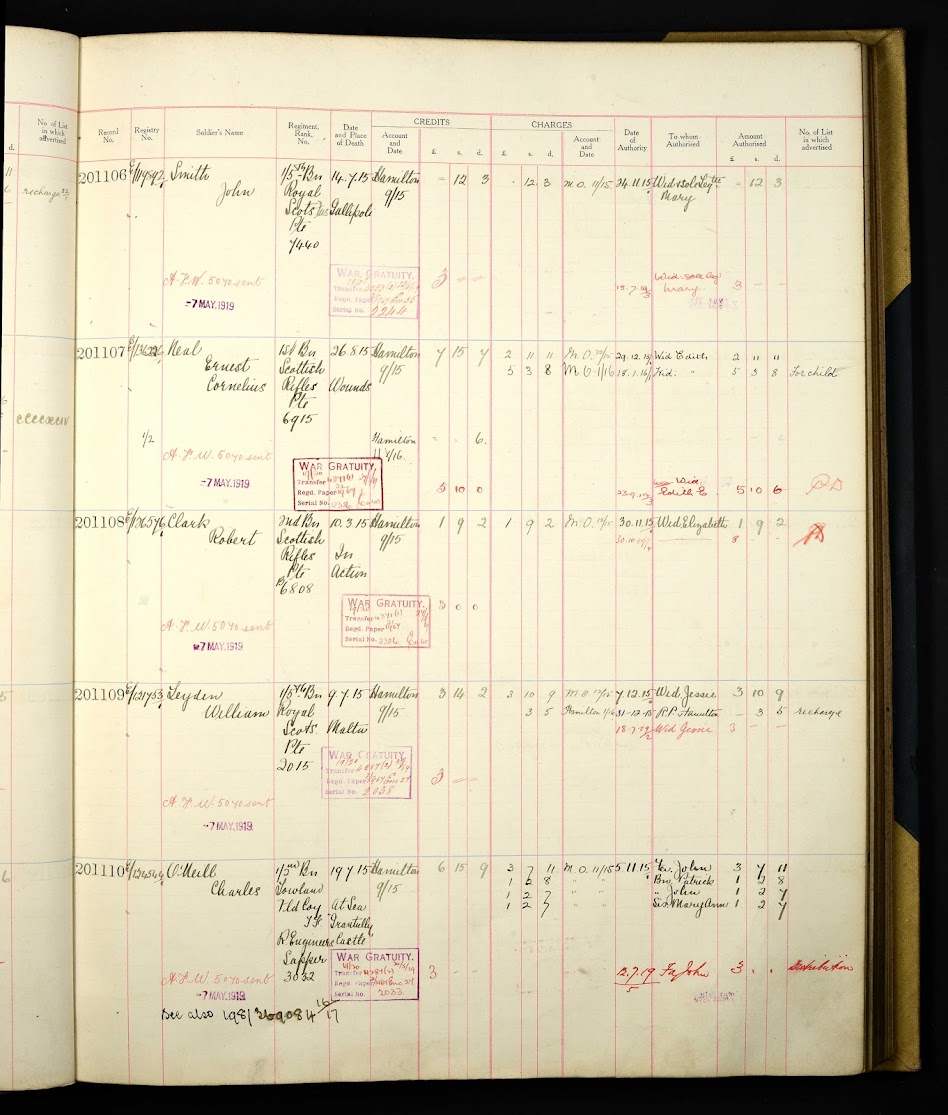 No. of List
in which
advertised
d.
recharge
ccccxciv
Record
No.
Registry
No.
Soldier's Name
Regiment,
Rank,
No.
Date
and Place
of Death
CREDITS
Account
and
Date
£ s. d.
CHARGES
£ s. d.
Account
and
Date
Date
of
Authority
To whom
Authorised
Amount
Authorised
£ s. d.
No. of List
in which
advertised
201106 E/119592 Smith 1/5th Bn 14.7.15 Hamilton - 12 3 - 12 3 M.O. 11/15 24.11.15 Wid & sole Legtee - 12 3
John Royal 9/15 Mary
Scots Gallipoli
Pte
7440
A.F.W. 5070 sent WAR GRATUITY. 3 - - 3 - -
Mary
-7 MAY.1919 Transfer
Regd. Paper
Serial No. 2244
201107 Neal 1st Bn 26.8.15 Hamilton 7 15 7 2 11 11 M.O. 29.12.15 Wid Edith 2 11 11
Ernest Scottish 9/15 5 3 8 M.O. 1/16 18.1.16 Wid: " 5 3 8 For child
Cornelius Rifles Wounds
Pte
6915
1/2 Hamilton - - 6.
A.F.W. 5070 sent
-7 MAY.1919 WAR GRATUITY.
Transfer
Regd. Paper
Serial No.
5 10 0 Wid: Edith C. 5 10 6
201108 E/136576 Clark 2nd Bn 10.3.15 Hamilton 1 9 2 1 9 2 M.O. 30.11.15 Wid Elizabeth 1 9 2
Robert Scottish 9/15 3 - -
Rifles In
Pte Action
6808
WAR GRATUITY. 3 0 0
Transfer
Regd. Paper
Serial No.
A.F.W. 5070 sent
-7 MAY.1919
201109 E/131753 Leyden 1/5th Bn 9.7.15 Hamilton 3 14 2 3 10 9 M.O. 12/15 7.12.15 Wid. Jessie 3 10 9
William Royal 9/15 3 5 Hamilton 1/16 31-12-15 R.P. Hamilton - 3 5 recharge
Scots Malta Wid Jessie 3 - -
Pte
2015 WAR GRATUITY. 3 - -
Transfer
Regd. Paper
Serial No. 2038
A.F.W. 5070 sent
-7 MAY.1919.
201110 E/134544 O'Neill 1/3rd Bn 19 7 15 Hamilton 6 15 9 3 7 11 M.O. 11/15 5.11.15 Fa. John 3 7 11
Charles Lowland 9/15 1 2 8 " " Bro. Patrick 1 2 8
Fld Coy At Sea 1 2 7 " " " John 1 2 7
T.F. Grantully 1 2 7 " " Sis. Mary Ann 1 2 7
R. Engineers Castle
Sapper
3032 WAR GRATUITY. 3 - - 12.7.19 Fa John 3 - - Distribution
A.F.W. 5070 sent Transfer
Regd. Paper
-7 MAY.1919 Serial No. 2033.
See also 198/